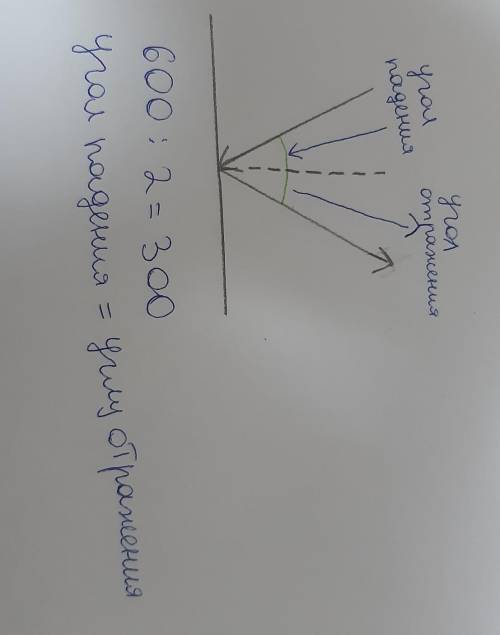 угол
падения
угол
отражения
600 : 2 = 300
угол падения = углу отражения